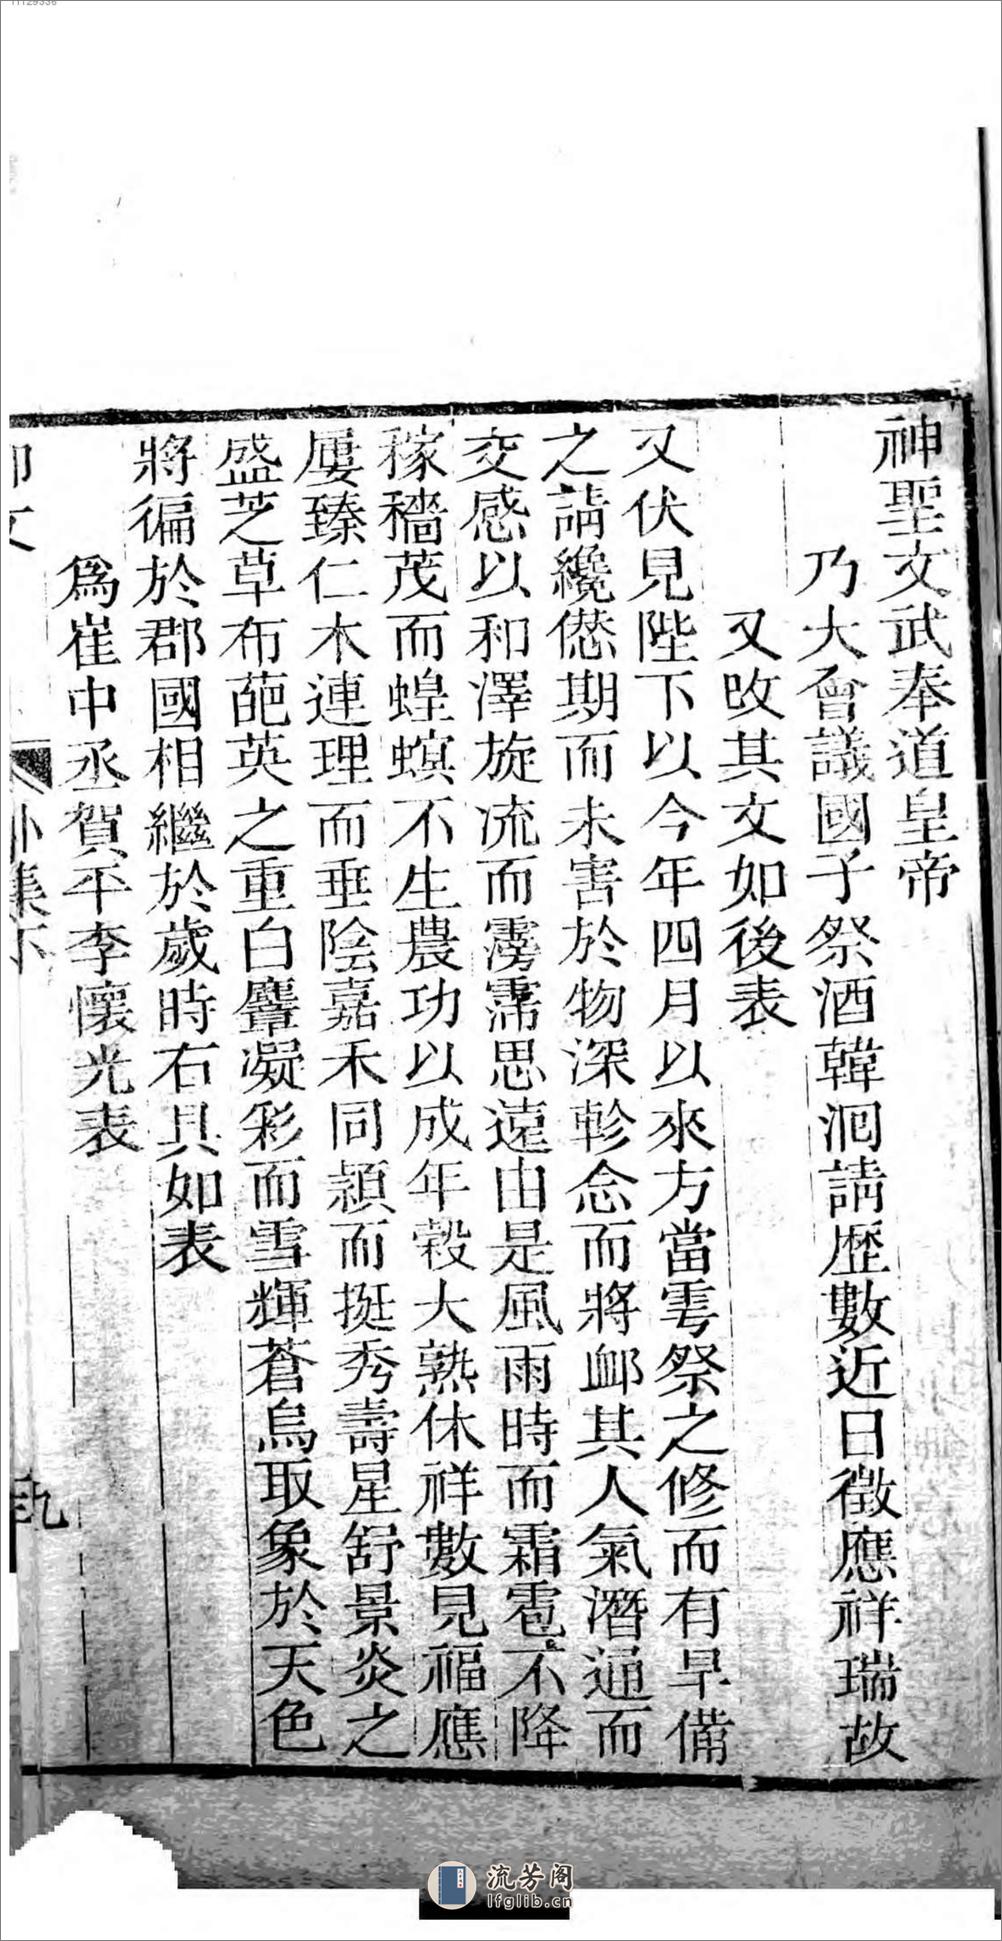 神聖文武奉道皇帝
乃大會議國子祭酒韓洄請歷數近日徵應祥瑞故
又攺其文如後表
又伏見陛下以今年四月以來方當雩祭之修而有早備
之請纔愆期而未害於物深軫念而將䘏其人氣潛通而
交感以和澤旋流而霶霈思遠由是風雨時而霜雹不降
稼穡茂而蝗螟不生農功以成年穀大熟休祥數見福應
屢臻仁木連理而垂陰嘉禾同穎而挺秀壽星舒景炎之
盛芝草布葩英之重白麞凝彩而雪輝蒼烏取象於天色
將徧於郡國相繼於歲時右具如表
爲崔中丞賀平李懷光表
柳文
外集下
九
流芳阁
lfglib.cn
11129336